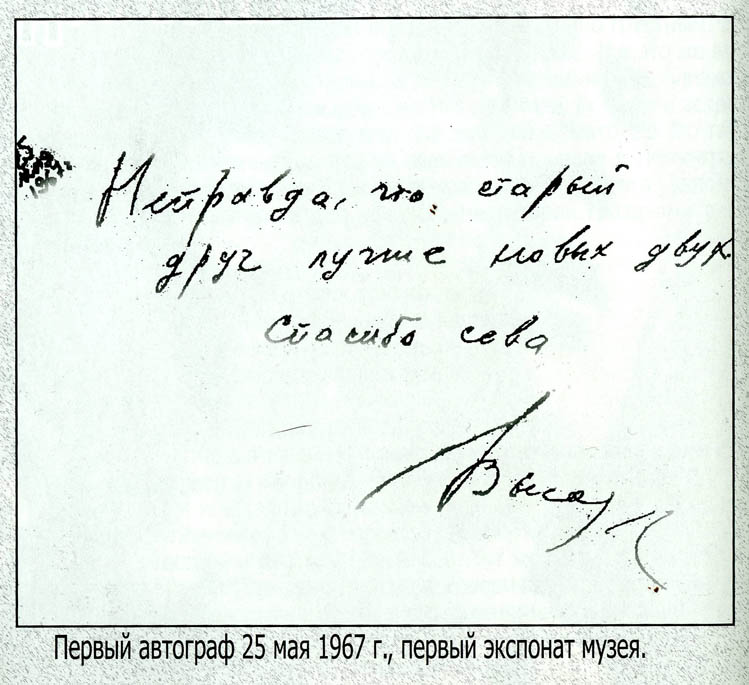 1967 г.
Неправда, что старый
друг лучше новых двух.
Спасибо сева
Высо
Первый автограф 25 мая 1967 г., первый экспонат музея.